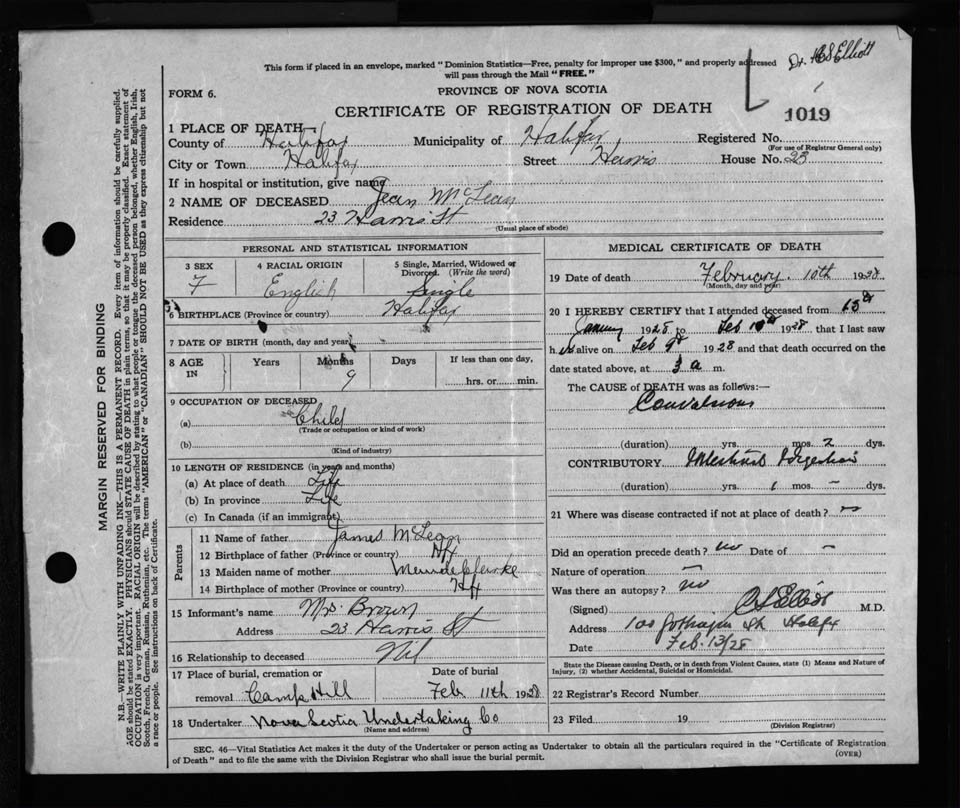 Dr. H S Elliott
This form if placed in an envelope, marked "Dominion Statistics—Free, penalty for improper use $300," and properly addressed
will pass through the Mail "FREE."
FORM 6.
PROVINCE OF NOVA SCOTIA
CERTIFICATE OF REGISTRATION OF DEATH
1019
1 PLACE OF DEATH—
County of Halifax Municipality of Halifax Registered No.
(For use of Registrar General only)
City or Town Halifax Street Harris House No. 23
If in hospital or institution, give name
2 NAME OF DECEASED Jean McLean
Residence 23 Harris St
(Usual place of abode)
PERSONAL AND STATISTICAL INFORMATION
3 SEX
F
4 RACIAL ORIGIN
English
5 Single, Married, Widowed or
Divorced. (Write the word)
Single
6 BIRTHPLACE (Province or country) Halifax
7 DATE OF BIRTH (month, day and year)
8 AGE
IN
Years
Months
9
Days
If less than one day,
hrs. or min.
9 OCCUPATION OF DECEASED
(a) Child
(Trade or occupation or kind of work)
(b)
(Kind of industry)
10 LENGTH OF RESIDENCE (in years and months)
(a) At place of death Life
(b) In province Life
(c) In Canada (if an immigrant)
Parents
11 Name of father James McLean
12 Birthplace of father (Province or country) Hfx
13 Maiden name of mother
14 Birthplace of mother (Province or country) Hfx
15 Informant's name Mrs. Brown
Address 23 Harris St
16 Relationship to deceased Nil
17 Place of burial, cremation or
removal Camp Hill
Date of burial
Feb. 11th 1928
18 Undertaker Nova Scotia Undertaking Co
(Name and address)
MEDICAL CERTIFICATE OF DEATH
19 Date of death February 10th 1928
(Month, day and year)
20 I HEREBY CERTIFY that I attended deceased from
January 1928 to Feb 10th 1928 that I last saw
h alive on Feb 9th 1928 and that death occurred on the
date stated above, at 3 a m.
The CAUSE of DEATH was as follows:—
Convulsions
(duration) yrs. mos. 2 dys.
CONTRIBUTORY Intestinal Indigestion
(duration) yrs. 1 mos. – dys.
21 Where was disease contracted if not at place of death?
Did an operation precede death? no Date of –
Nature of operation –
Was there an autopsy? no
(Signed) Elliott M.D.
Address 100 St Halifax
Date Feb. 13/28
State the Disease causing Death, or in death from Violent Causes, state (1) Means and Nature of
Injury, (2) whether Accidental, Suicidal or Homicidal.
22 Registrar's Record Number
23 Filed 19
(Division Registrar)
SEC. 46—Vital Statistics Act makes it the duty of the Undertaker or person acting as Undertaker to obtain all the particulars required in the "Certificate of Registration
of Death" and to file the same with the Division Registrar who shall issue the burial permit.
(OVER)
MARGIN RESERVED FOR BINDING
N.B.—WRITE PLAINLY WITH UNFADING INK—THIS IS A PERMANENT RECORD. Every item of information should be carefully supplied.
AGE should be stated EXACTLY. PHYSICIANS should STATE CAUSE OF DEATH in plain terms, so that it may be properly classified. Exact statement of
OCCUPATION is very important. RACIAL ORIGIN will be described by stating to what people or tongue the deceased person belonged, whether English, Irish,
Scotch, French, German, Russian, Ruthenian, etc. The terms "AMERICAN" or "CANADIAN" SHOULD NOT BE USED as they express citizenship but not
a race or people. See instructions on back of Certificate.